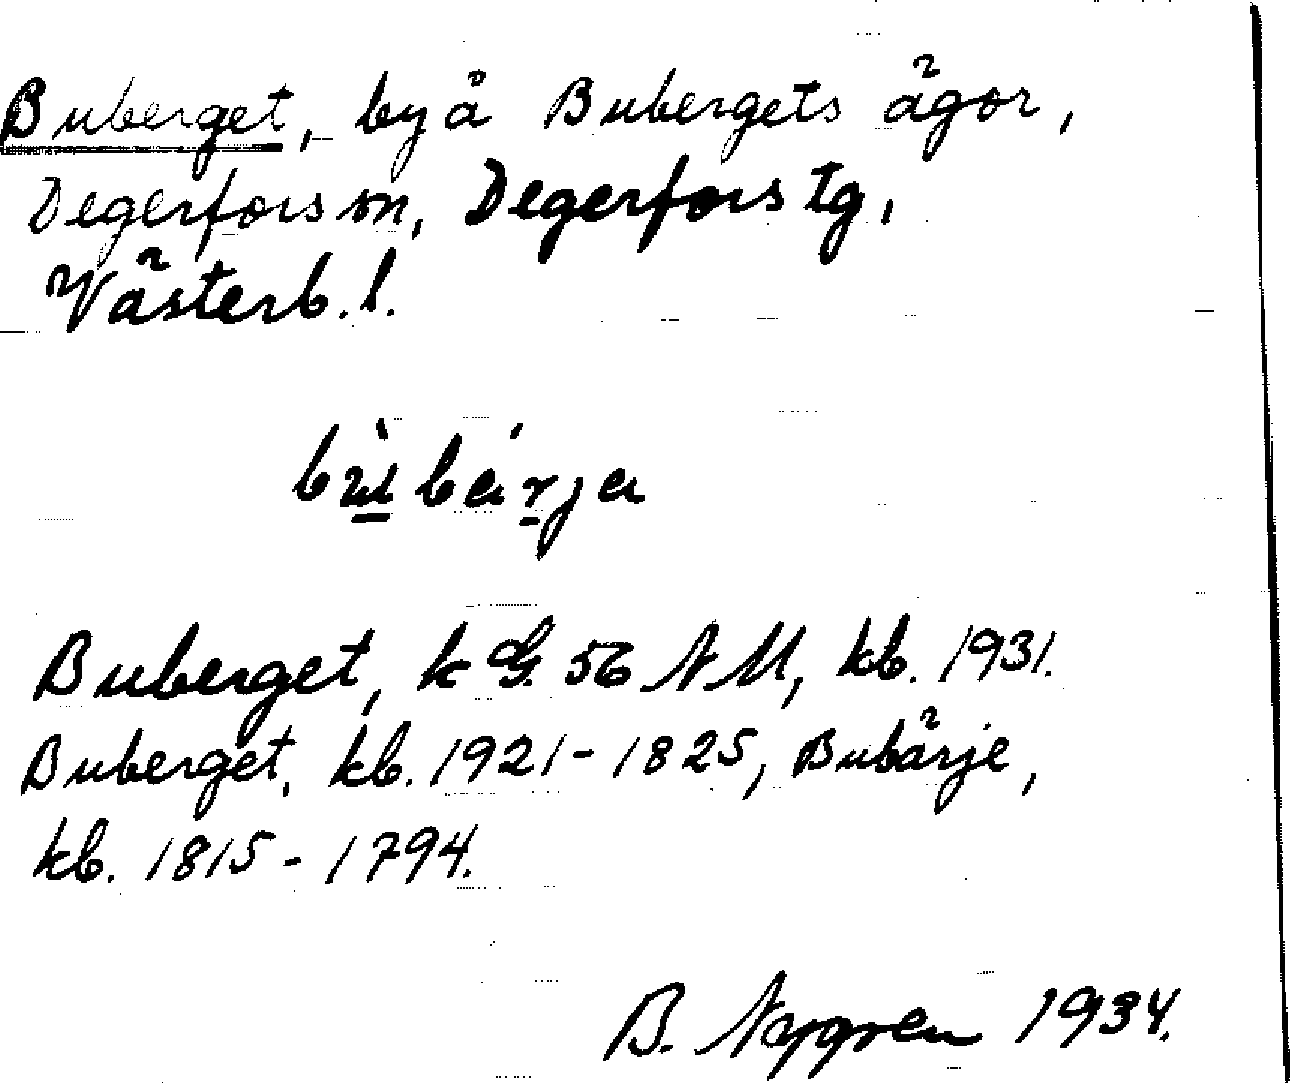 Buberget, by å Bubergets ägor,
Degerfors sn, Degerfors tg,
Västerb. l.
bù̲bár̲ja
Buberget, k G. 56 NM, kb. 1931.
Buberget, kb. 1921-1825, Bubärje,
kb. 1815-1794.
B. Nygren 1934.